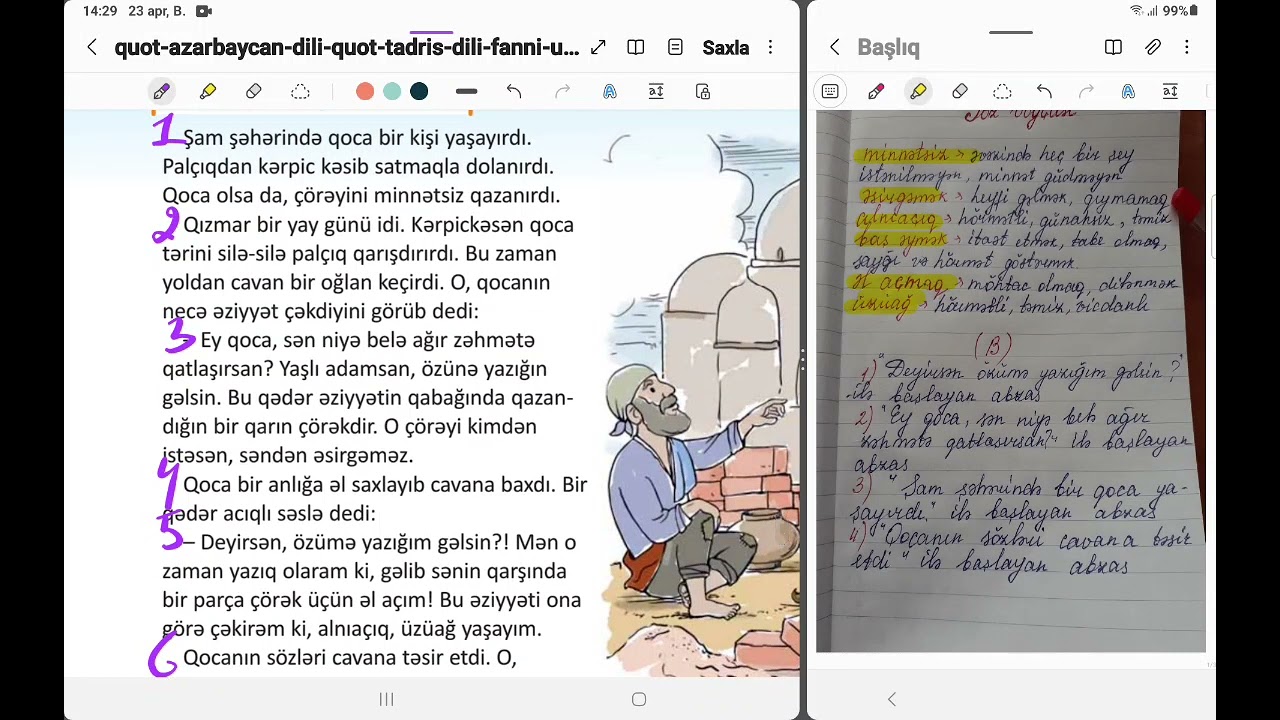 14:29 23 apr, B.
99%
quot-azarbaycan-dili-quot-tadris-dili-fanni-u...
Saxla
Başlıq
1 Şam şəhərində qoca bir kişi yaşayırdı.
Palçıqdan kərpic kəsib satmaqla dolanırdı.
Qoca olsa da, çörəyini minnətsiz qazanırdı.
2 Qızmar bir yay günü idi. Kərpickəsən qoca
tərini silə-silə palçıq qarışdırırdı. Bu zaman
yoldan cavan bir oğlan keçirdi. O, qocanın
necə əziyyət çəkdiyini görüb dedi:
3 Ey qoca, sən niyə belə ağır zəhmətə
qatlaşırsan? Yaşlı adamsan, özünə yazığın
gəlsin. Bu qədər əziyyətin qabağında qazan-
dığın bir qarın çörəkdir. O çörəyi kimdən
istəsən, səndən əsirgəməz.
4 Qoca bir anlığa əl saxlayıb cavana baxdı. Bir
qədər acıqlı səslə dedi:
5 – Deyirsən, özümə yazığım gəlsin?! Mən o
zaman yazıq olaram ki, gəlib sənin qarşında
bir parça çörək üçün əl açım! Bu əziyyəti ona
görə çəkirəm ki, alnıaçıq, üzüağ yaşayım.
6 Qocanın sözləri cavana təsir etdi. O,
minnətsiz → əvəzində heç bir şey
istənilməyən, minnət güdməyən
əsirgəmək → heyfi gəlmək, qıymamaq
alnıaçıq → hörmətli, günahsız, təmiz
baş əymək → itaət etmək, tabe olmaq,
sayğı və hörmət göstərmək.
əl açmaq → möhtac olmaq, dilənmək
üzüağ → hörmətli, təmiz, vicdanlı
(B)
1) "Deyirsən özümə yazığım gəlsin?"
ilə başlayan abzas
2) "Ey qoca, sən niyə belə ağır
zəhmətə qatlaşırsan?" ilə başlayan
abzas
3) "Şam şəhərində bir qoca ya-
şayırdı." ilə başlayan abzas
4) "Qocanın sözləri cavana təsir
etdi" ilə başlayan abzas